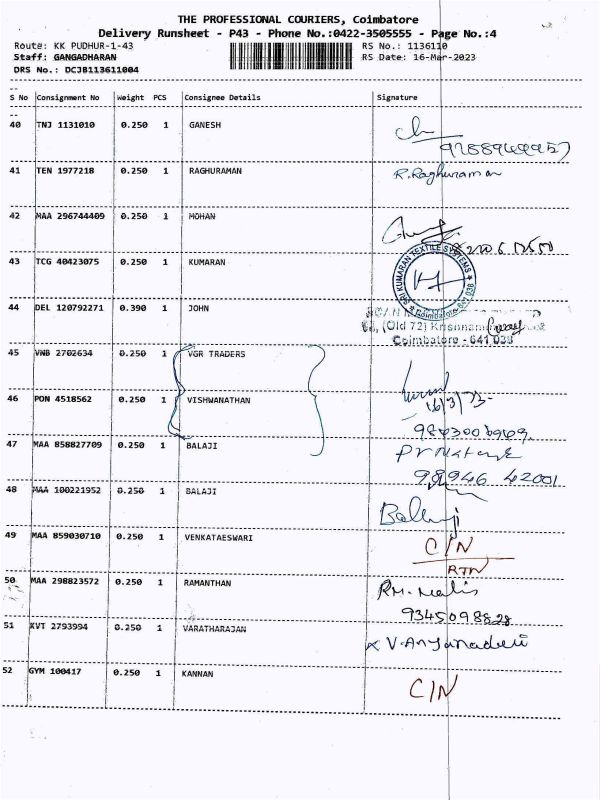 THE PROFESSIONAL COURIERS, Coimbatore
Delivery Runsheet - P43 - Phone No.:0422-3505555 - Page No.:4
Route: KK PUDHUR-1-43 RS No.: 1136110
Staff: GANGADHARAN RS Date: 16-Mar-2023
DRS No.: DCJB113611004
S No Consignment No Weight PCS Consignee Details Signature
40 TNJ 1131010 0.250 1 GANESH
41 TEN 1977218 0.250 1 RAGHURAMAN R.Raghuraman
42 MAA 296744409 0.250 1 MOHAN
43 TCG 40423075 0.250 1 KUMARAN SRI KUMARAN TEXTILE SYSTEMS Coimbatore 641 038
44 DEL 120792271 0.390 1 JOHN
(Old 72)
Coimbatore - 641 038
45 VNB 2702634 0.250 1 VGR TRADERS
46 PON 4518562 0.250 1 VISHWANATHAN 16/3/23
47 MAA 858827709 0.250 1 BALAJI
98946 42001
48 MAA 100221952 0.250 1 BALAJI Balaji
49 MAA 859030710 0.250 1 VENKATAESWARI C/N
RTN
50 MAA 298823572 0.250 1 RAMANTHAN
9345098828
51 KVT 2793994 0.250 1 VARATHARAJAN
52 GYM 100417 0.250 1 KANNAN C/N